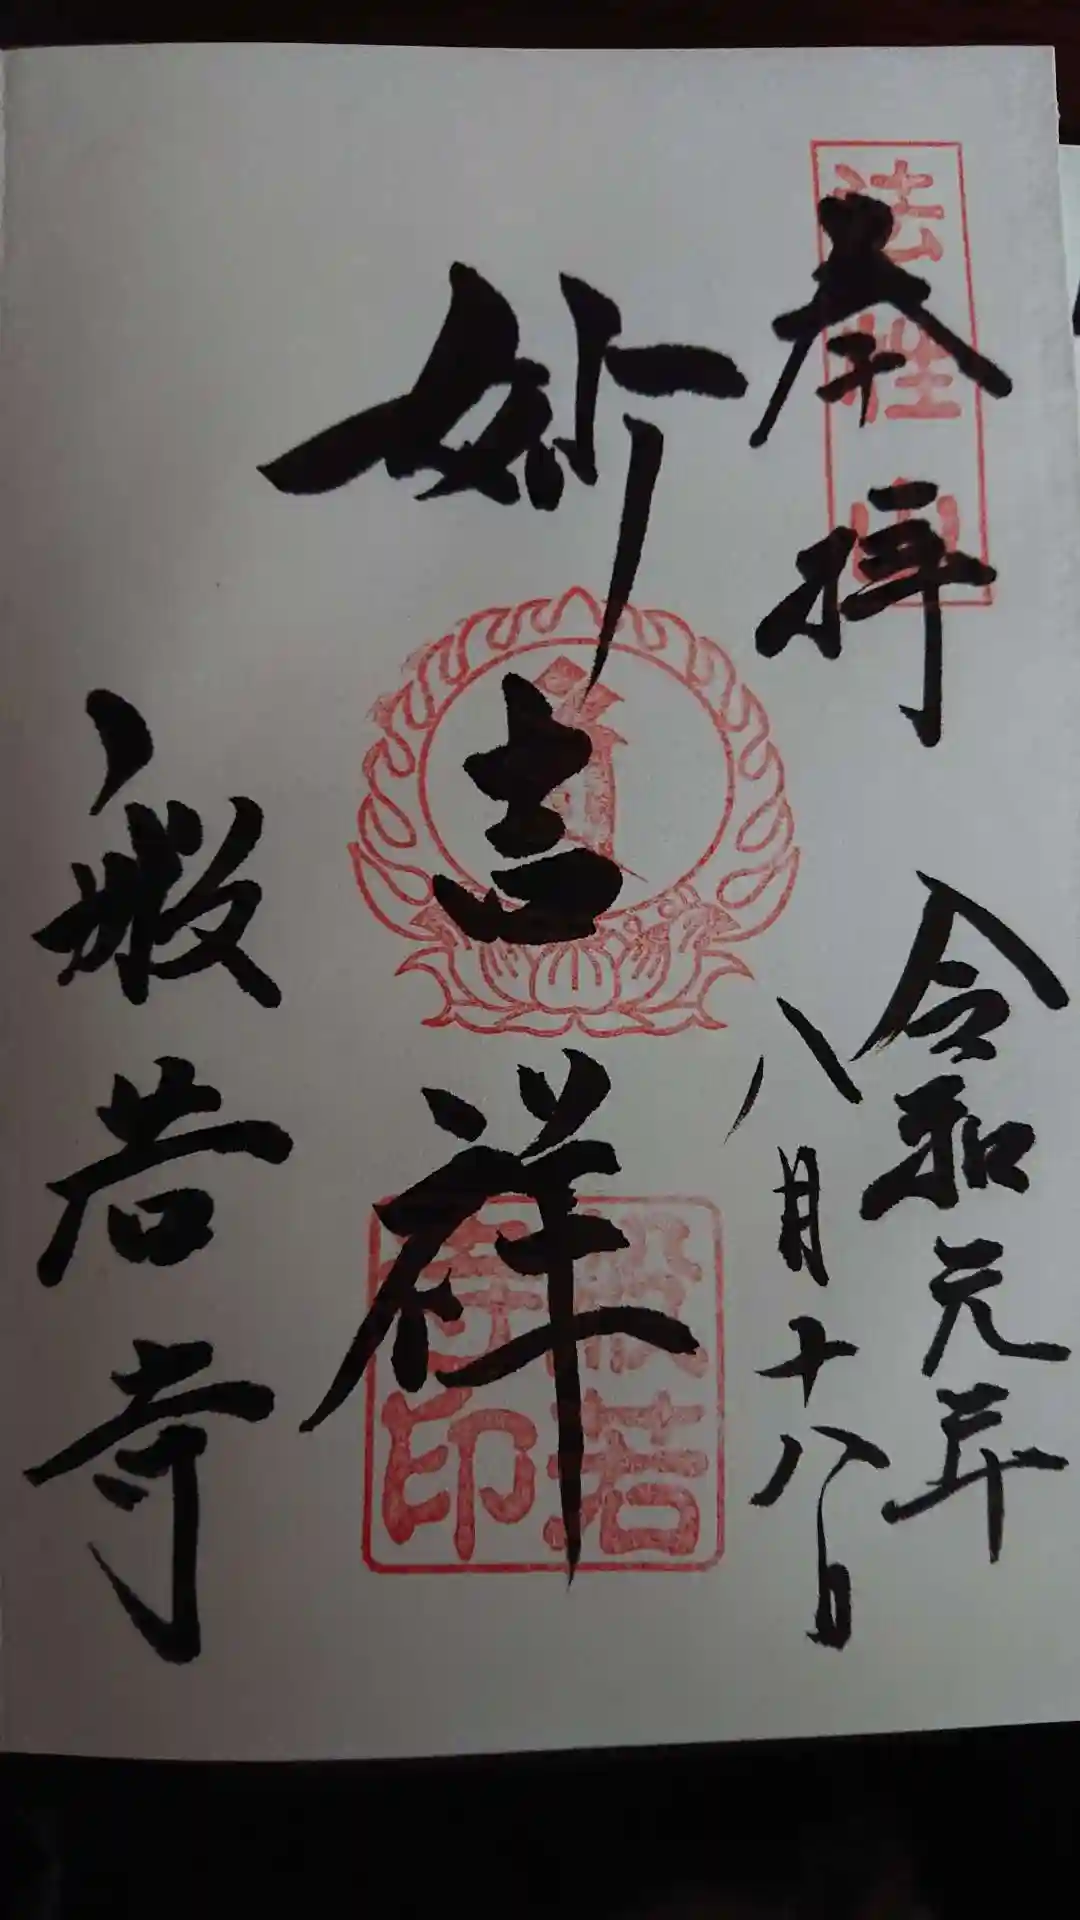 奉拝
法性山
令和元年
八月十八日
妙吉祥
般若寺印
般若寺